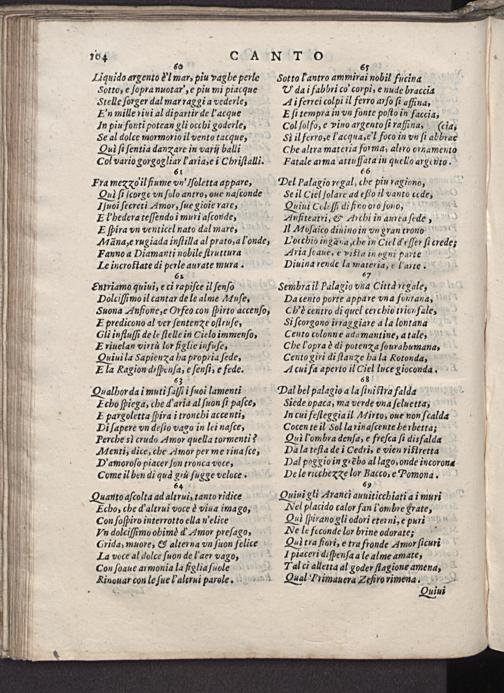 104 CANTO
60
Liquido argento è'l mar, piu vaghe perle
Sotto, e sopra nuotar', e piu mi piacque
Stelle sorger dal mar raggi a vederle,
E'n mille rivi al dipartir de l'acque
In piu fonti potean gli occhi goderle,
Se al dolce mormorio il vento tacque,
Quì si sentia danzare in varij balli
Col vario gorgogliar l'aria, e i Christalli.
61
Fra mezzo'l fiume vn'Isoletta appare,
Quì si scorge vn solo antro, oue nasconde
I suoi secreti Amor, sue gioie rare,
E l'hedera tessendo i muri asconde,
E spira vn venticel nato dal mare,
Māna, e rugiada instilla al prato, a l'onde,
Fanno a Diamanti nobile struttura
Le incrostate di perle aurate mura.
62
Entriamo quiui, e ci rapisce il senso
Dolcissimo il cantar de le alme Muse,
Suona Anfione, e Orfeo con spirto accenso,
E predicono al ver sentenze ostruse,
Gli influssi de le stelle in Cielo immenso,
E riuelan virtù lor figlie infuse,
Quiui la Sapienza ha propria sede,
E la Ragion dispensa, e sensi, e fede.
63
Qualhor da i muti sassi i suoi lamenti
Echo spiega, che d'aria al suon si pasce,
E pargoletta spira i tronchi accenti,
Di sapere vn desio vago in lei nasce,
Perche sì crudo Amor quella tormenti?
Menti, dice, che Amor per me rinasce,
D'amoroso piacer son tronca voce,
Come il ben di quà giù fugge veloce.
64
Quanto ascolta ad altrui, tanto ridice
Echo, che d'altrui voce è viua imago,
Con sospiro interrotto ella n'elice
Vn dolcissimo ohimè d'Amor presago,
Grida, muore, & alterna vn suon felice
La voce al dolce suon de l'aer vago,
Con soaue armonia la figlia suole
Rinouar con le sue l'altrui parole.
65
Sotto l'antro ammirai nobil fucina
V' da i fabbri co' corpi, e nude braccia
A i ferrei colpi il ferro arso si affina,
E si tempra in vn fonte posto in faccia,
Col solfo, e vino argento si raffina, (cia,
Sì il ferro, e l'acqua, e'l foco in vn si abbrac
Che altra materia forma, altro ornamento
Fatale arma attuffata in quello argento.
66
Del Palagio regal, che piu ragiono,
Se il Ciel solare ad esso il vanto cede,
Quiui Colossi di fino oro sono,
Anfiteatri, & Archi in aurea sede,
Il Mosaico diuino in vn gran trono
L'occhio ingāna, che in Ciel d'esser si crede;
Aria soaue, e vista in ogni parte
Diuina rende la materia, e l'arte.
67
Sembra il Palagio vna Città regale,
Da cento porte appare vna fontana,
Ch'è centro di quel cerchio trionfale,
Si scorgono irraggiare a la lontana
Cento colonne adamantine, a tale,
Che l'opra è di potenza sourahumana,
Cento giri di stanze ha la Rotonda,
A cui fa aperto il Ciel luce gioconda.
68
Dal bel palagio a la sinistra falda
Siede opaca, ma verde vna seluetta,
In cui festeggia il Mirto, oue non scalda
Cocente il Sol la rinascente herbetta;
Quì l'ombra densa, e fresca si disfalda
Da la testa de i Cedri, e vien ristretta
Dal poggio in grēbo al lago, onde incorona
De le ricchezze lor Bacco, e Pomona.
69
Quiui gli Aranci auuiticchiati a i muri
Nel placido calor fan l'ombre grate,
Quì spirano gli odori eterni, e puri
Ne le feconde lor brine odorate;
Quì tra fiori, e tra fronde Amor sicuri
I piaceri dispensa a le alme amate,
Tal ci alletta al goder stagione amena,
Qual Primauera Zefiro rimena.
Quiui